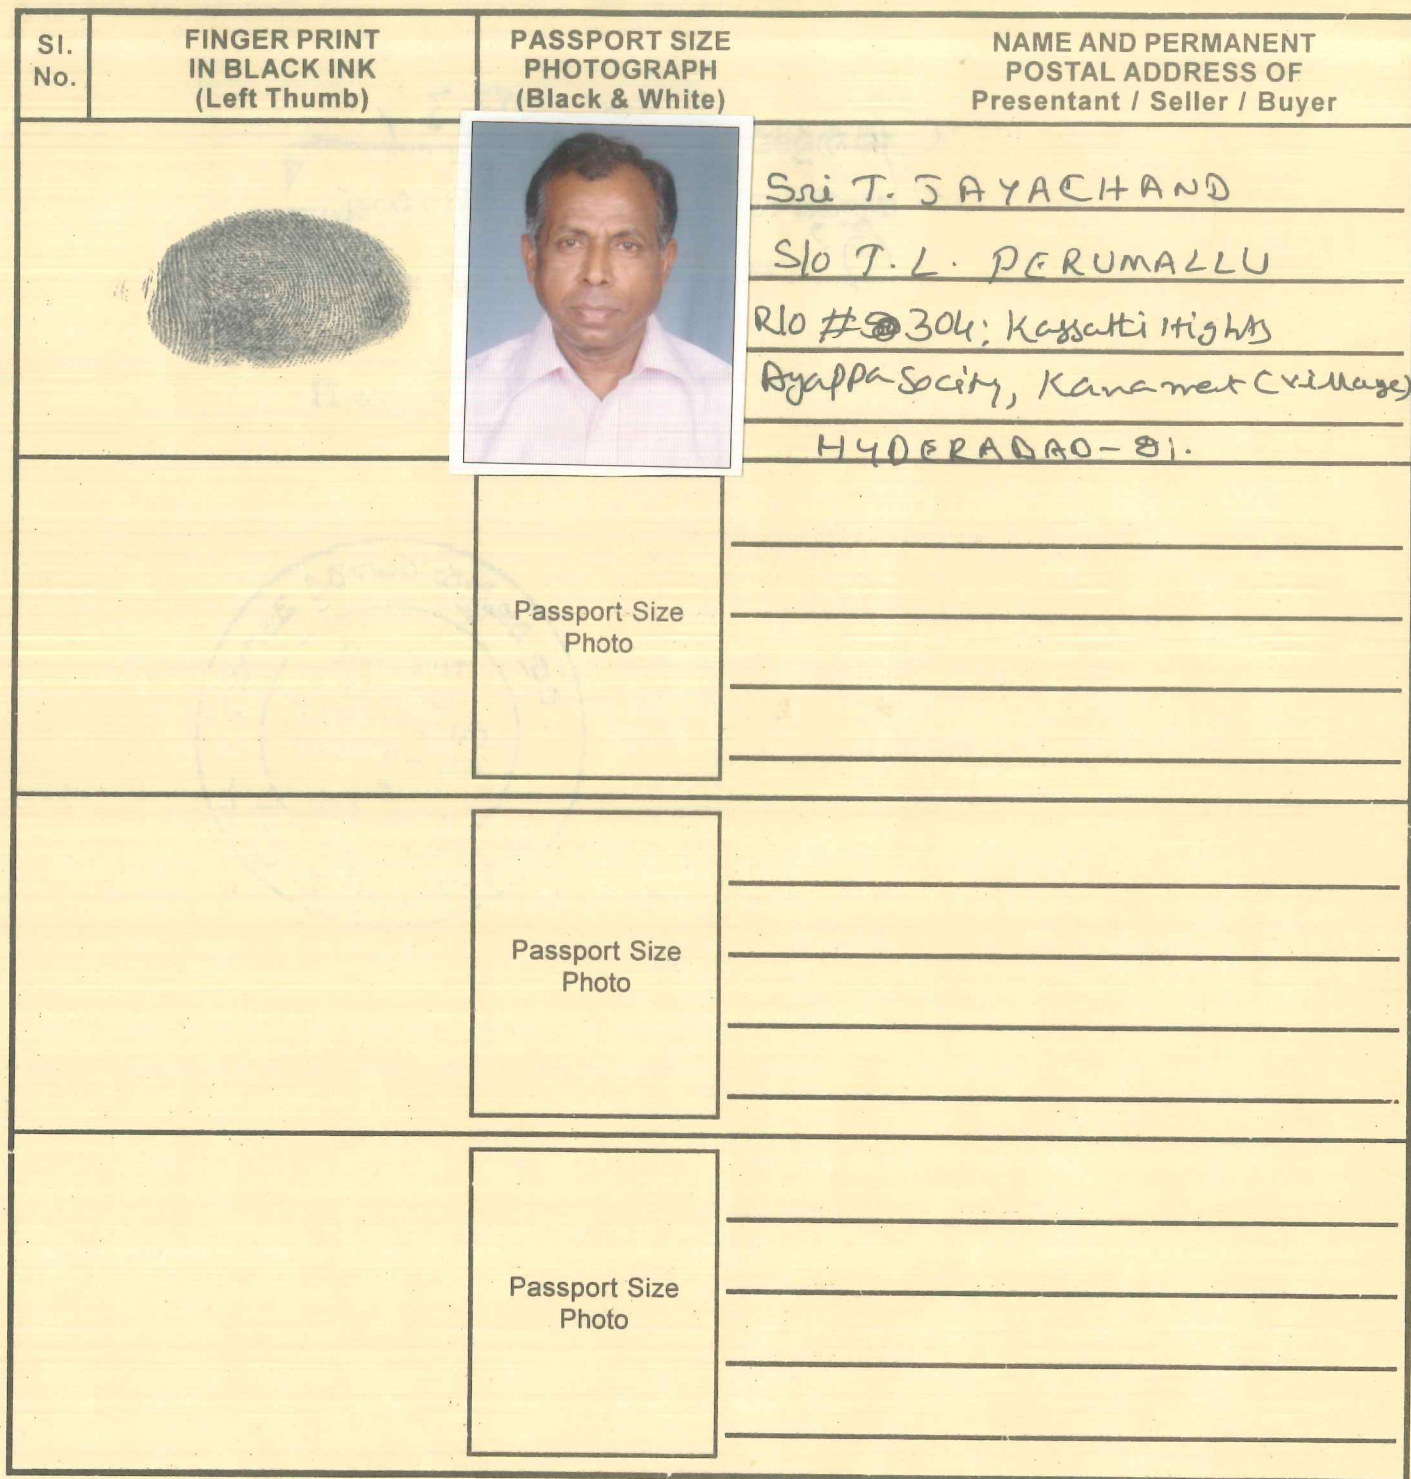 Sl. No.
FINGER PRINT
IN BLACK INK
(Left Thumb)
PASSPORT SIZE
PHOTOGRAPH
(Black & White)
NAME AND PERMANENT
POSTAL ADDRESS OF
Presentant / Seller / Buyer
Sri T. JAYACHAND
S/o T. L. PERUMALLU
R/o # 304; Kassatti Hights
Ayappa Socity, Kanamet (village)
HYDERABAD - 81.
Passport Size
Photo
Passport Size
Photo
Passport Size
Photo